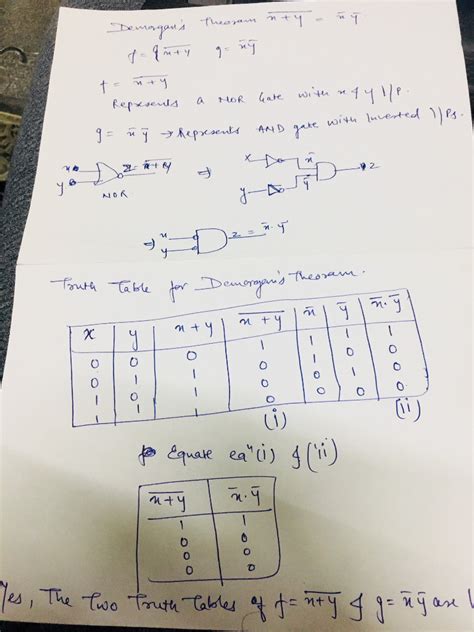 Demorgan's Theoram x̅+̅y̅ = x̄ȳ
f = x̅+̅y̅ g = x̄ȳ
f = x̅+̅y̅
Represents a NOR Gate with x & y I/P.
g = x̄ ȳ → Represents AND gate with Inverted I/Ps.
x y z = x̅+̅y̅ NOR ⇒ x y x̄ ȳ z
⇒ x y z = x̄ · ȳ
Truth Table for Demorgan's Theoram.
x y x+y x̅+̅y̅ x̄ ȳ x̄·ȳ
0 0 0 1 1 1 1
0 1 1 0 1 0 0
1 0 1 0 0 1 0
1 1 1 0 0 0 0
(i) (ii)
Equate eqⁿ (i) & (ii)
x̅+̅y̅ x̄·ȳ
1 1
0 0
0 0
0 0
Yes, The Two Truth Tables of f = x̅+̅y̅ & g = x̄ȳ are